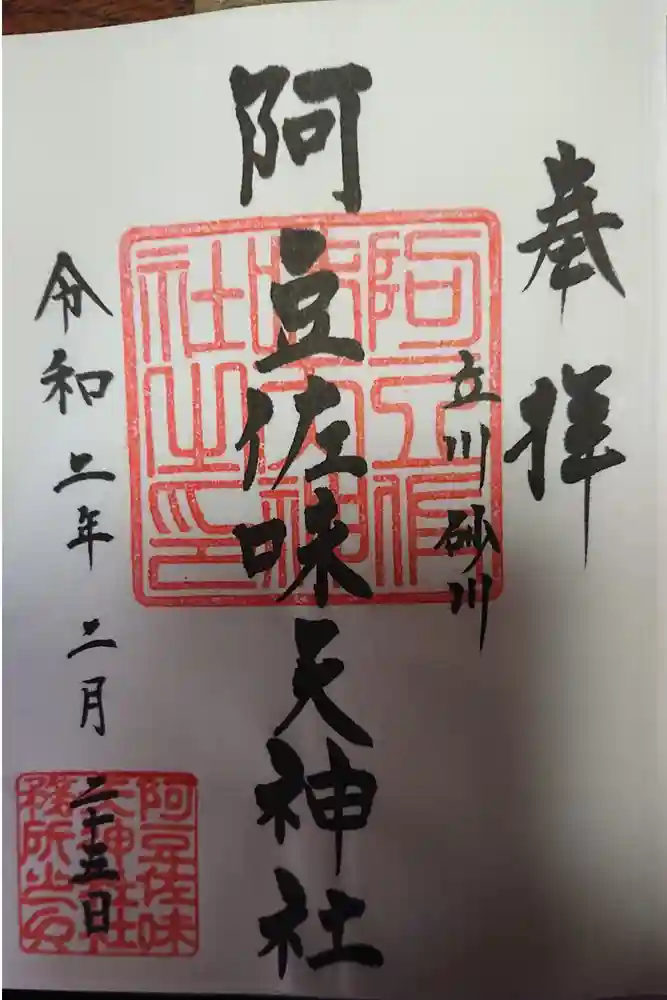 奉拝
立川砂川
阿豆佐味天神社
令和二年 二月 二十五日
阿豆佐味
天神社
務所之印